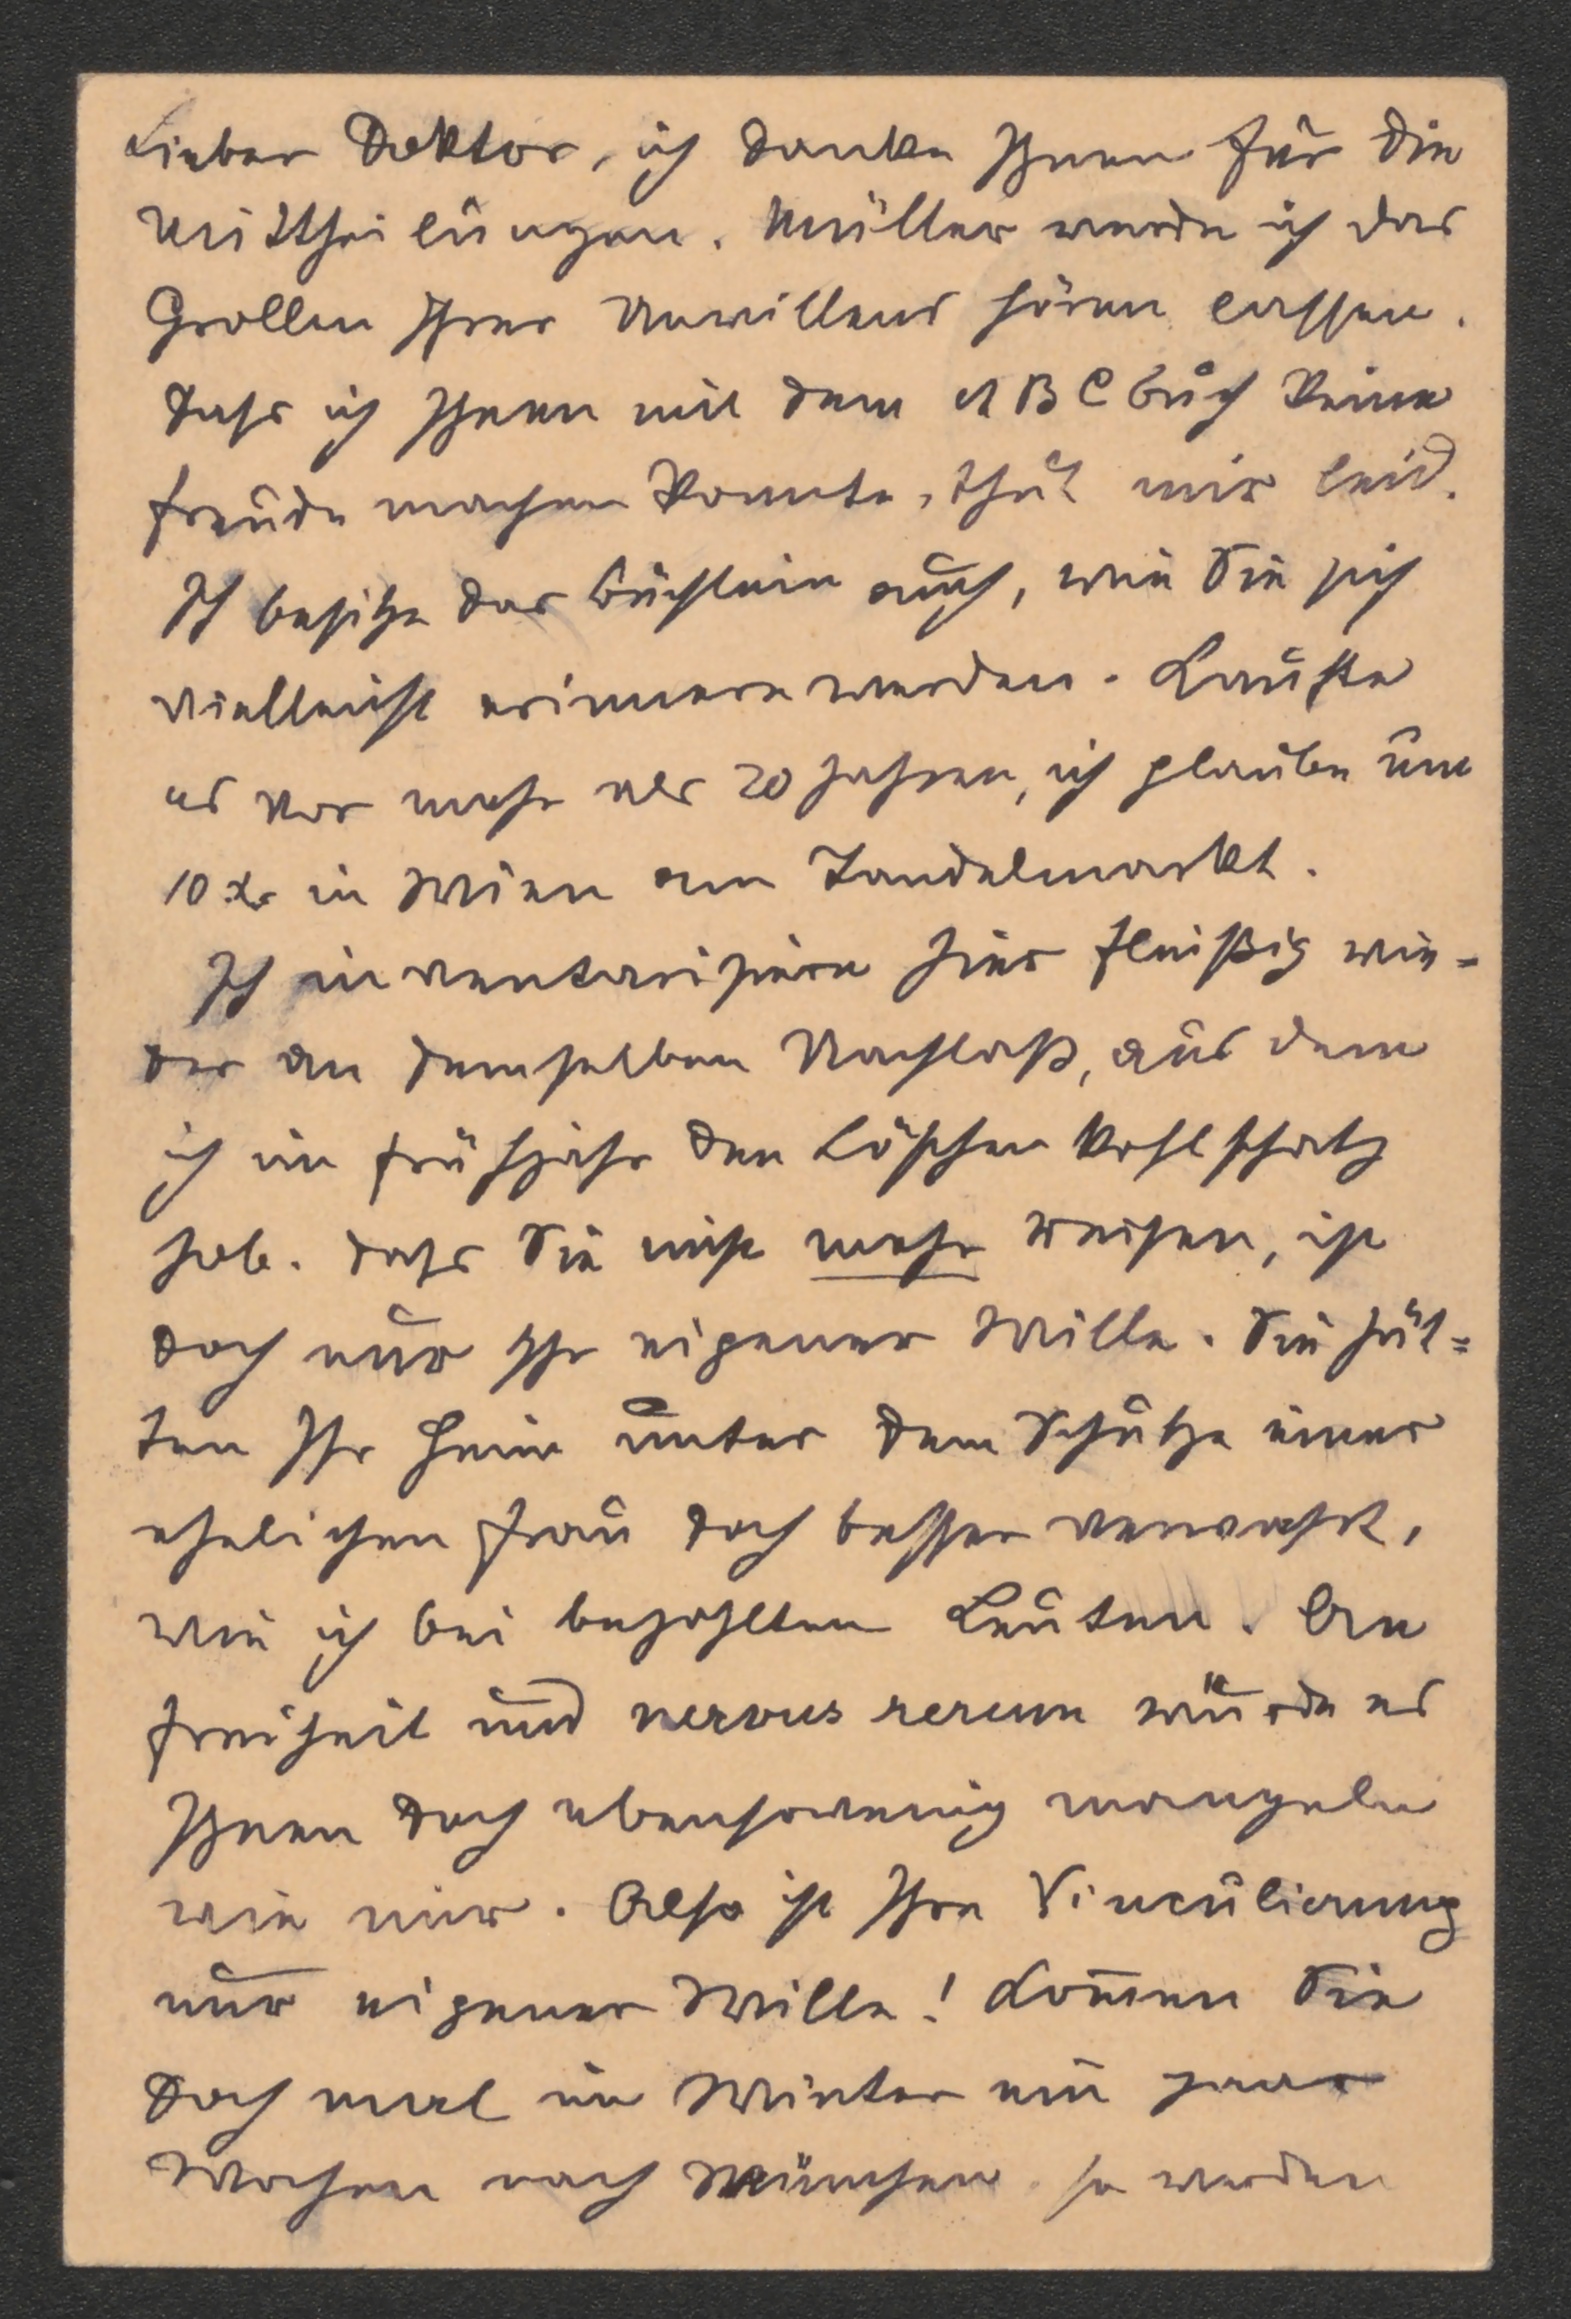 Lieber Doktor, ich danke Ihnen für die
Mittheilungen. Müller werde ich das
Grollen Ihres Unwillens hören lassen.
Dass ich Ihnen mit dem ABC buch keine
Freude machen konnte, thut mir leid.
Ich besitze das Büchlein auch, wie Sie sich
vielleicht erinnern werden. Kaufte
es vor mehr als 20 Jahren, ich glaube um
10 Kr in Wien am Tandelmarkt.
Ich inventarisiere hier fleißig wie-
der an demselben Nachlaß, aus dem
ich im Frühjahr den Löschenkohlschatz
hob. Dass Sie nicht mehr reisen, ist
doch nur Ihr eigener Wille. Sie hät=
ten Ihr Heim unter dem Schutze einer
ehelichen Frau doch besser verwahrt,
wie ich bei bezahlten Leuten. An
Freiheit und nervus rerum würde es
Ihnen doch ebensowenig mangeln
wie mir. Also ist Ihre Vinculierung
nur eigener Wille! Kom̄en Sie
doch mal im Winter ein paar
Wochen nach München. so werden